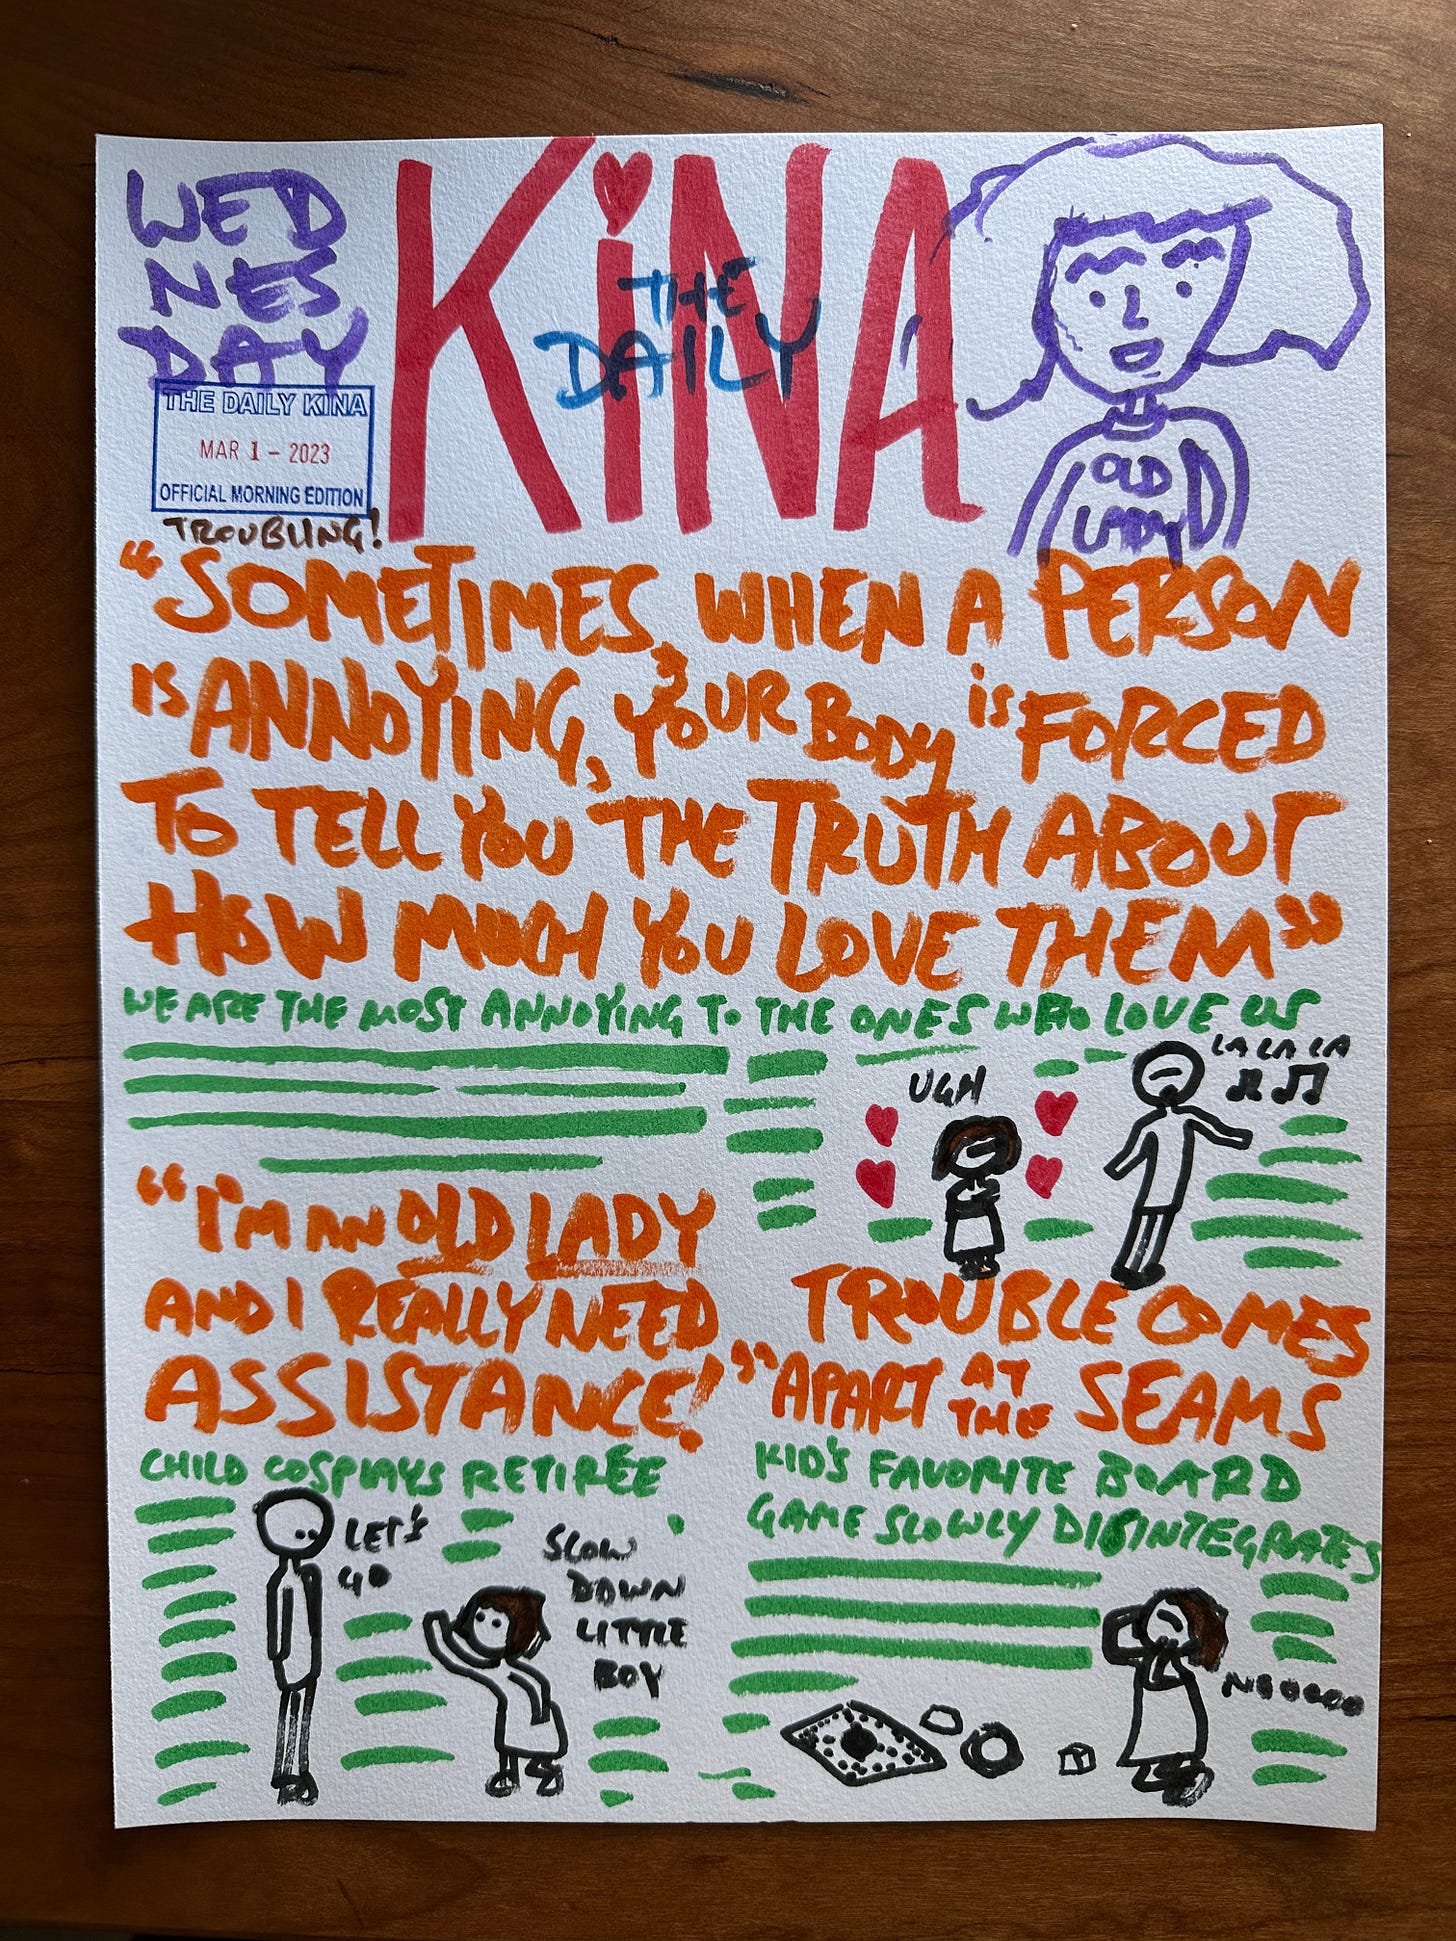 WED
NES
DAY
THE DAILY KINA
MAR 1 - 2023
OFFICIAL MORNING EDITION
TROUBLING!
KiNA
THE
DAILY
OLD
LADY
"SOMETIMES, WHEN A PERSON
IS ANNOYING, YOUR BODY is FORCED
TO TELL YOU THE TRUTH ABOUT
HOW MUCH YOU LOVE THEM"
WE ARE THE MOST ANNOYING TO THE ONES WHO LOVE US
UGH
LA LA LA
"I'M AN OLD LADY
AND I REALLY NEED
ASSISTANCE!"
CHILD COSPLAYS RETIRÉE
LET'S
GO
SLOW
DOWN
LITTLE
BOY
TROUBLE COMES
APART AT THE SEAMS
KID'S FAVORITE BOARD
GAME SLOWLY DISINTEGRATES
NOOOOO